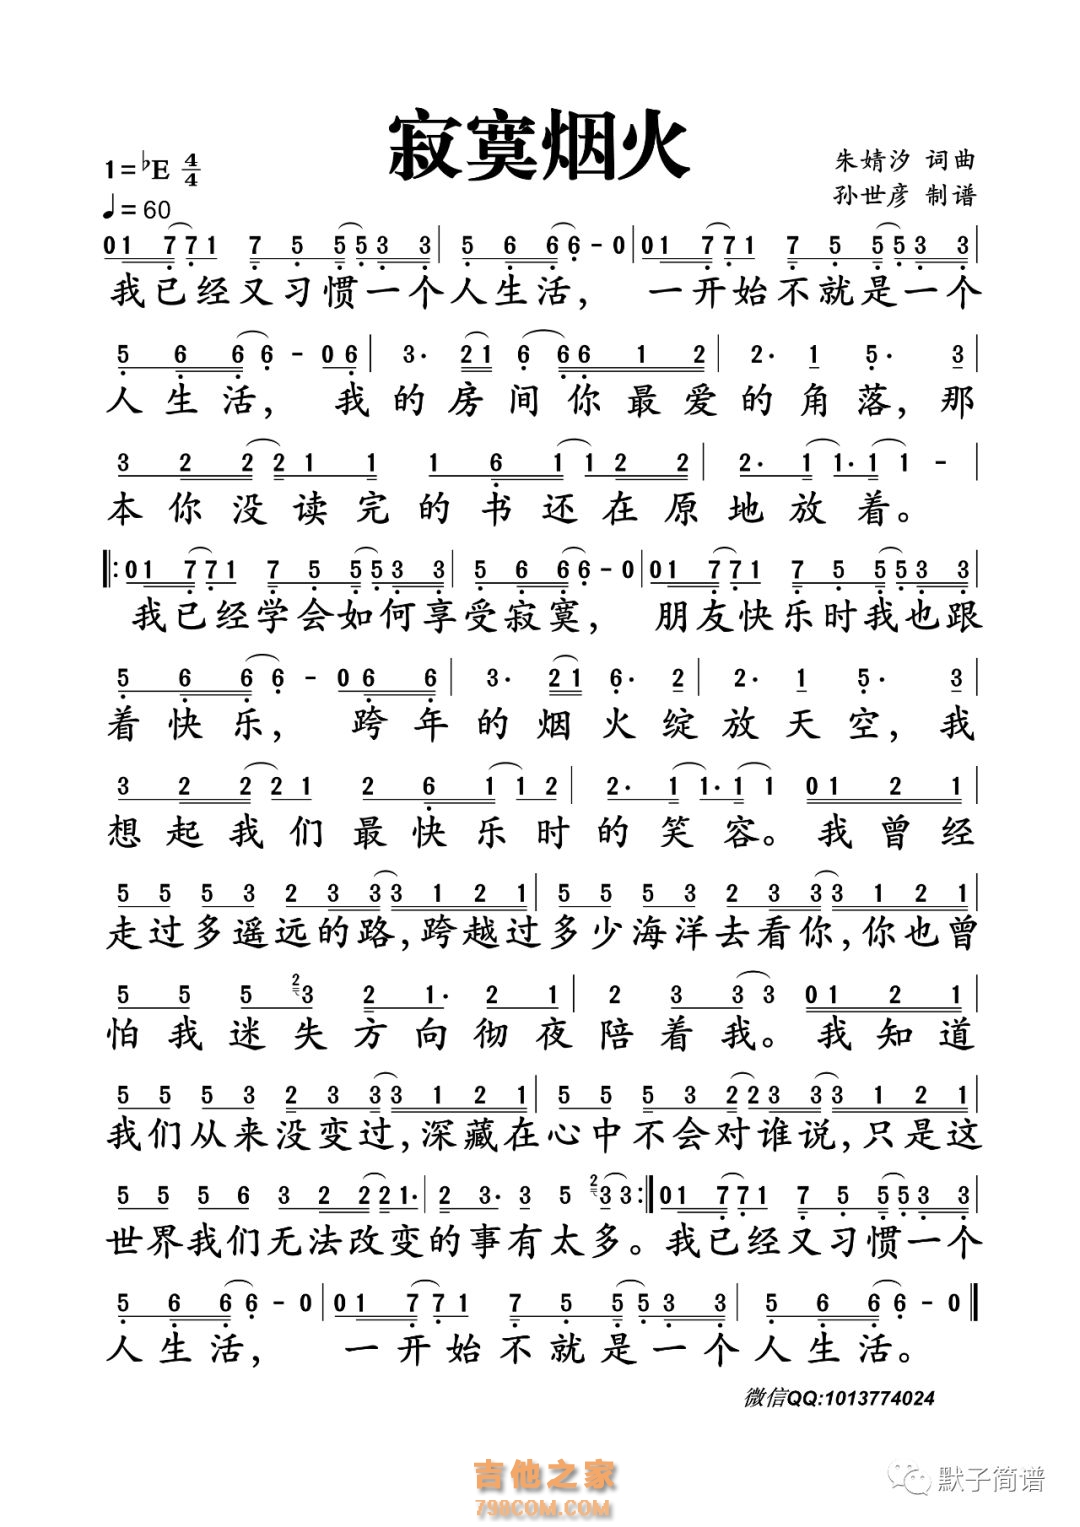 寂寞烟火
1=♭E 4/4
朱婧汐 词曲
♩=60
孙世彦 制谱
01 771 7 5 5533|5 6 66-0|01 771 7 5 5533|
我已经又习惯一个人生活，一开始不就是一个
5 6 66-06|3· 21 6 66 1 2|2· 1 5· 3
人生活，我的房间你最爱的角落，那
3 2 22 1 1 1 6 1 1 2 2|2· 1 1·1 1 -|
本你没读完的书还在原地放着。
‖:01 771 7 5 5533|5 6 66-0|01 771 7 5 5533|
我已经学会如何享受寂寞，朋友快乐时我也跟
5 6 66-0 6 6|3· 21 6· 2|2· 1 5· 3|
着快乐，跨年的烟火绽放天空，我
3 2 22 1 2 6 1 1 2|2· 1 1·1 1 01 2 1|
想起我们最快乐时的笑容。我曾经
5 5 5 3 2 3 33 1 2 1|5 5 5 3 2 3 33 1 2 1|
走过多遥远的路，跨越过多少海洋去看你，你也曾
5 5 5 2 3 2 1· 2 1|2 3 3 3 01 2 1|
怕我迷失方向彻夜陪着我。我知道
5 5 5 3 2 3 33 1 2 1|5 5 5 3 22 3 33 1 2 1|
我们从来没变过，深藏在心中不会对谁说，只是这
5 5 5 6 3 2 22 1·|2 3· 3 5 2 33:‖01 771 7 5 5533|
世界我们无法改变的事有太多。我已经又习惯一个
5 6 66-0|01 771 7 5 5533|5 6 66-0‖
人生活，一开始不就是一个人生活。
微信QQ:1013774024
吉他之家
798COM.COM
默子简谱